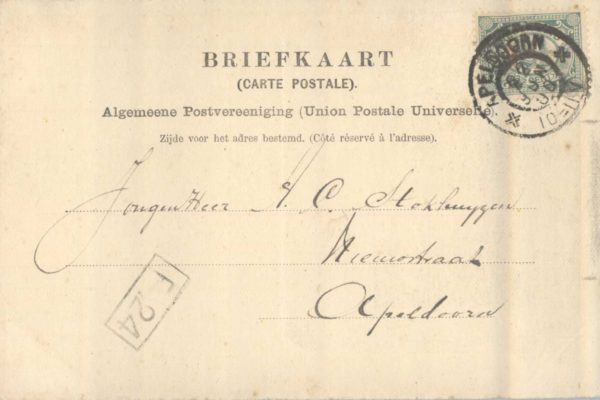 BRIEFKAART
(CARTE POSTALE).
Algemeene Postvereeniging (Union Postale Universelle).
Zijde voor het adres bestemd. (Côté réservé à l'adresse).
APELDOORN
JongenHeer A. C. Stokhuyzen
Nieuwstraat
Apeldoorn
F.24